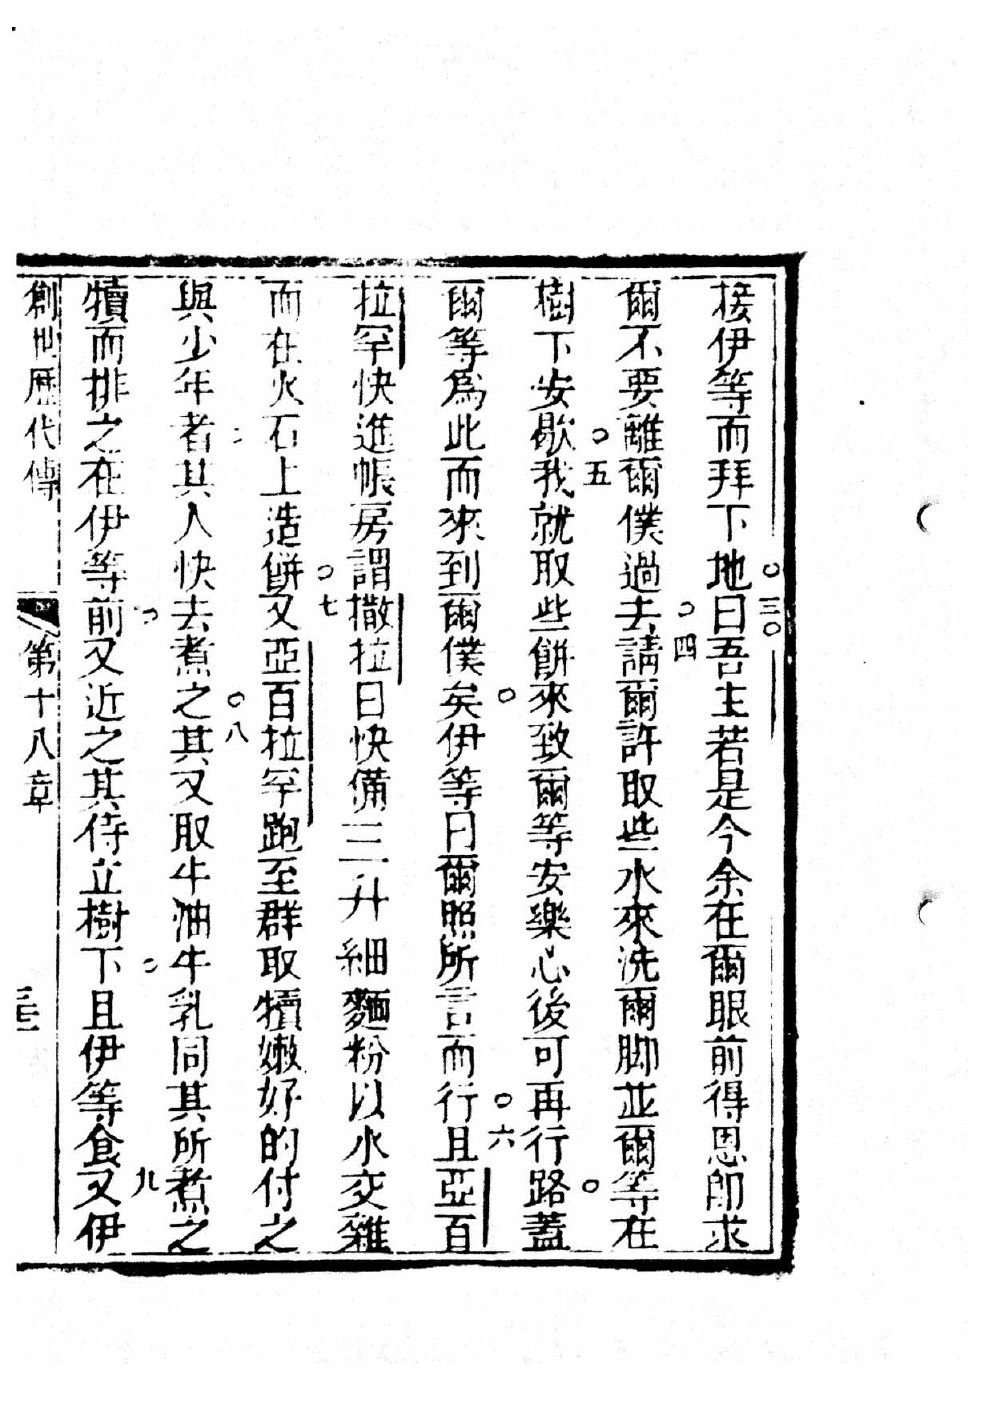 接伊等而拜下地。三。曰吾主若是今余在爾眼前得恩卽求
爾不要離爾僕過去。四請爾許取些水來洗爾脚並爾等在
樹下安歇。五我就取些餅來致爾等安樂心後可再行路。蓋
爾等爲此而來到爾僕矣。伊等曰爾照所言而行。六且亞百
拉罕快進帳房謂撒拉曰快備三升細麵粉以水交雜
而在火石上造餅。七又亞百拉罕跑至群取犢嫩好的付之
與少年者。其人快去煮之。八其又取牛油牛乳同其所煮之
犢而排之在伊等前。又近之其侍立樹下。且伊等食九又伊
創世歷代傳 第十八章 三三